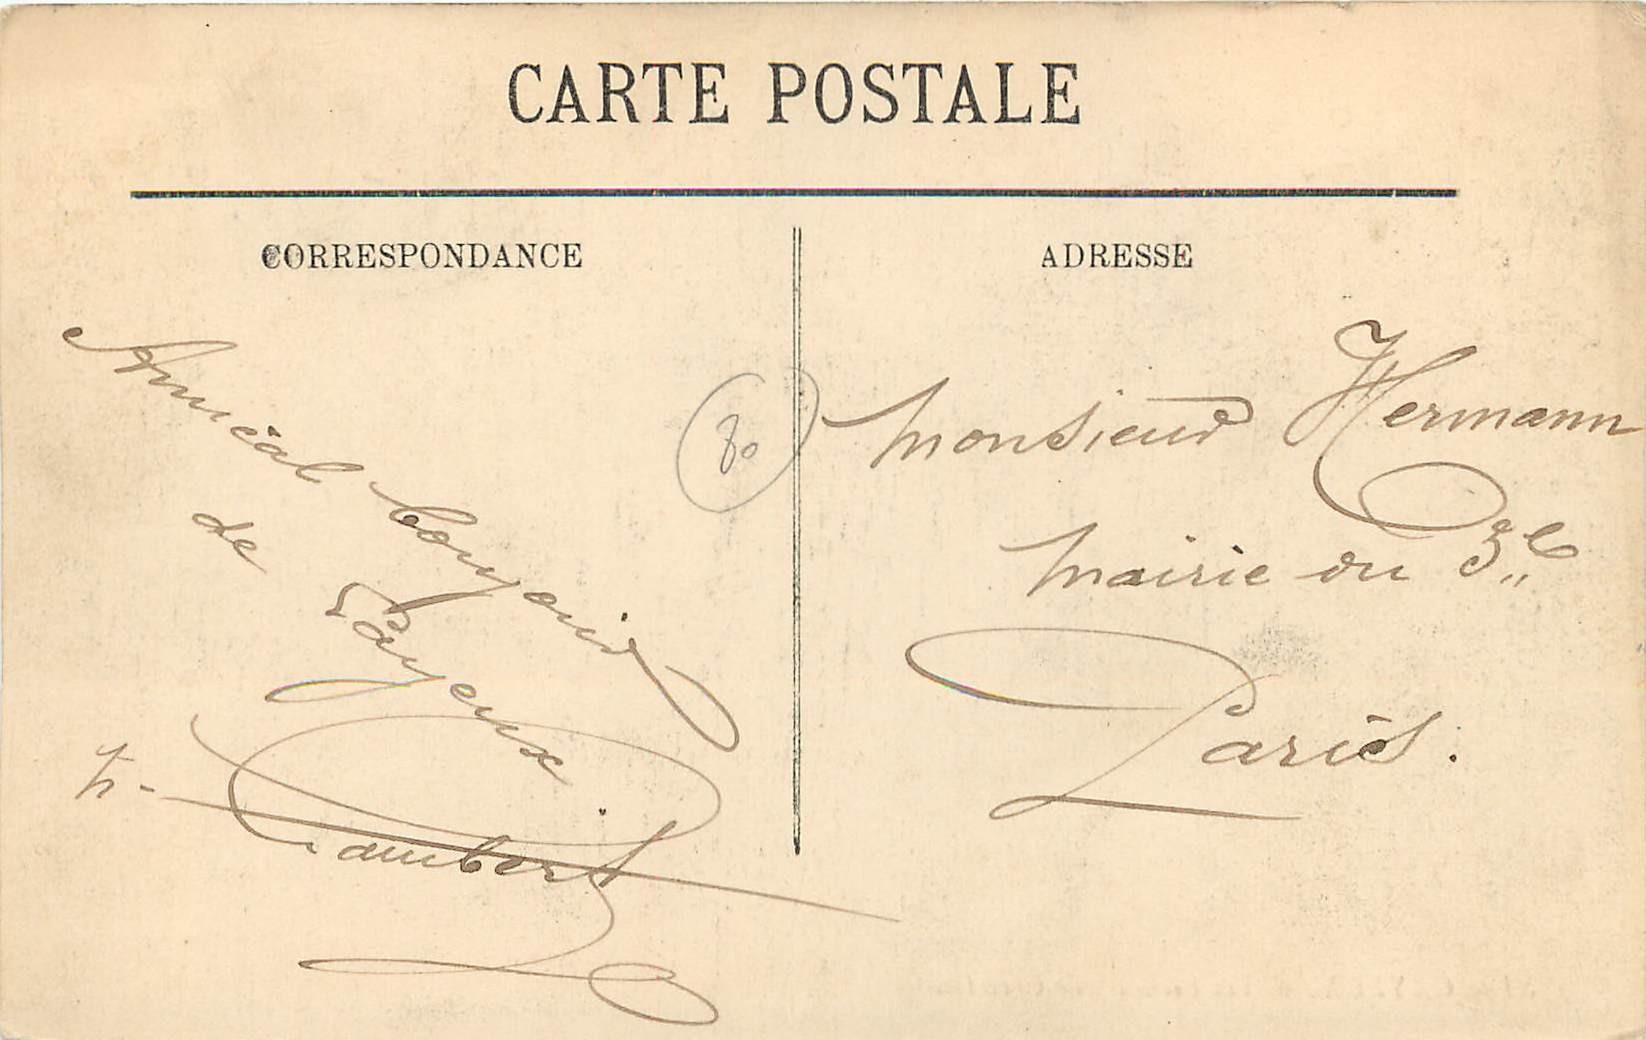 CARTE POSTALE
CORRESPONDANCE
ADRESSE
Amical bonjour
de Cayeux
h. Lambert
80
Monsieur Hermann
Mairie du 3e
Paris.